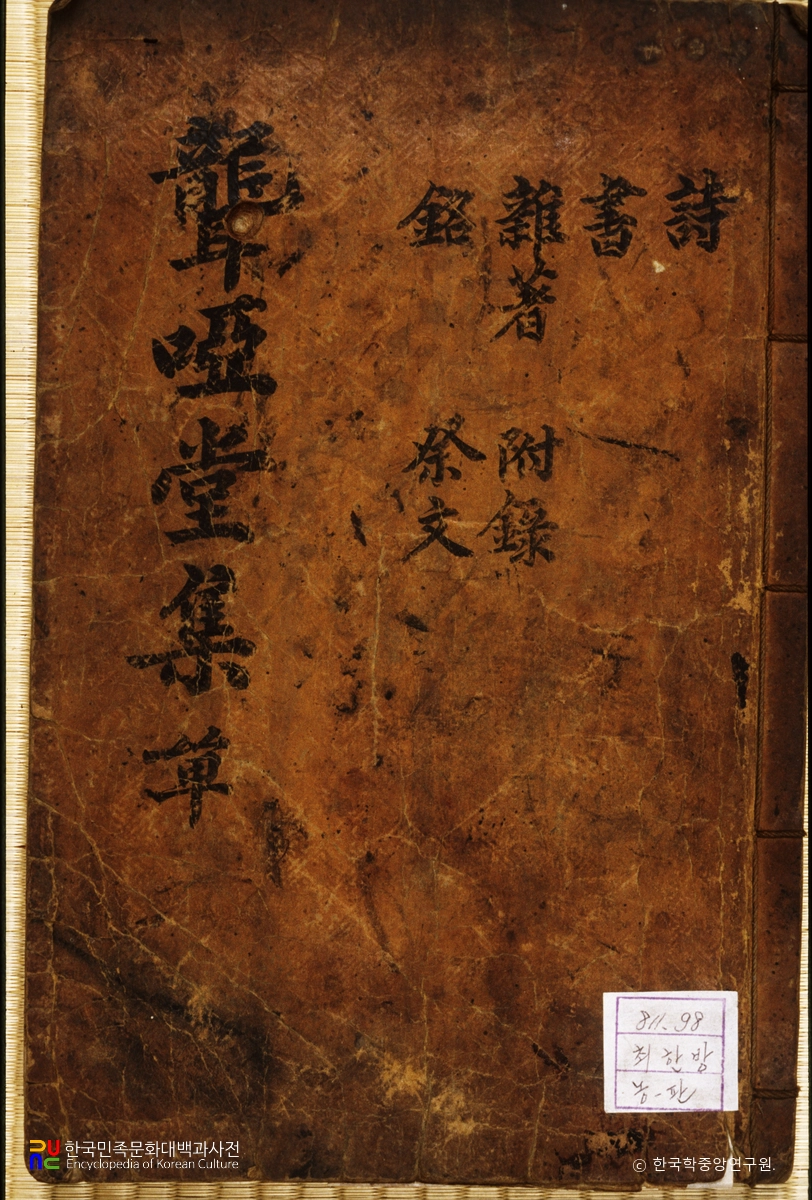 詩
書
雜著
附錄
銘
祭文
聾啞堂集 単
811.98
한국민족문화대백과사전
Encyclopedia of Korean Culture
© 한국학중앙연구원.